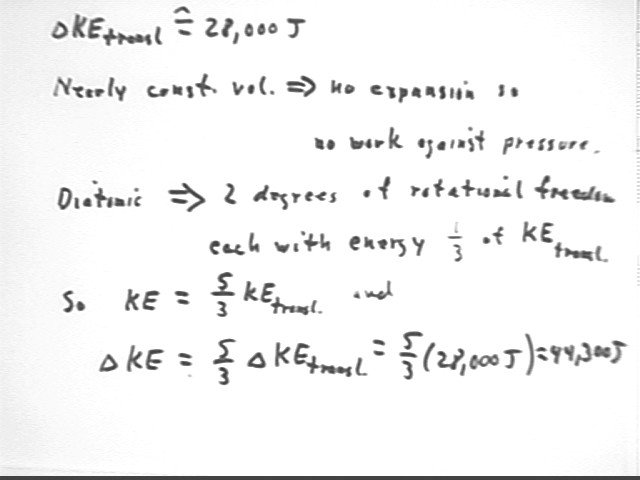 ΔKE_transl ≙ 28,000 J
Nearly const. vol. ⇒ no expansion so
no work against pressure.
Diatomic ⇒ 2 degrees of rotational freedom
each with energy 1/3 of KE_transl.
So KE = 5/3 KE_transl. and
ΔKE = 5/3 ΔKE_transl = 5/3 (28,000 J) = 44,300 J